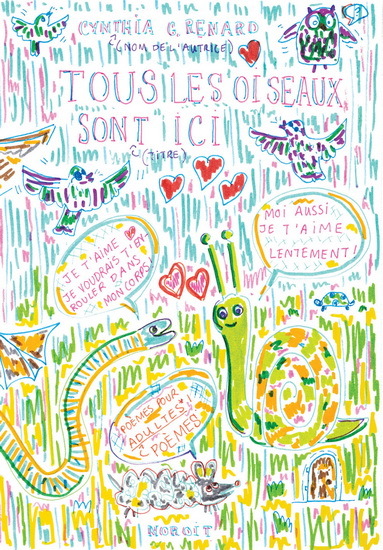 CYNTHIA G. RENARD
(NOM DE L'AUTRICE)
TOUS LES OISEAUX
SONT ICI
(TITRE)
JE T'AIME,
JE VOUDRAIS T'EN-
ROULER DANS
MON CORPS!
MOI AUSSI
JE T'AIME
LENTEMENT!
POÈMES POUR
ADULTES,
POÈMES
NOROÎT